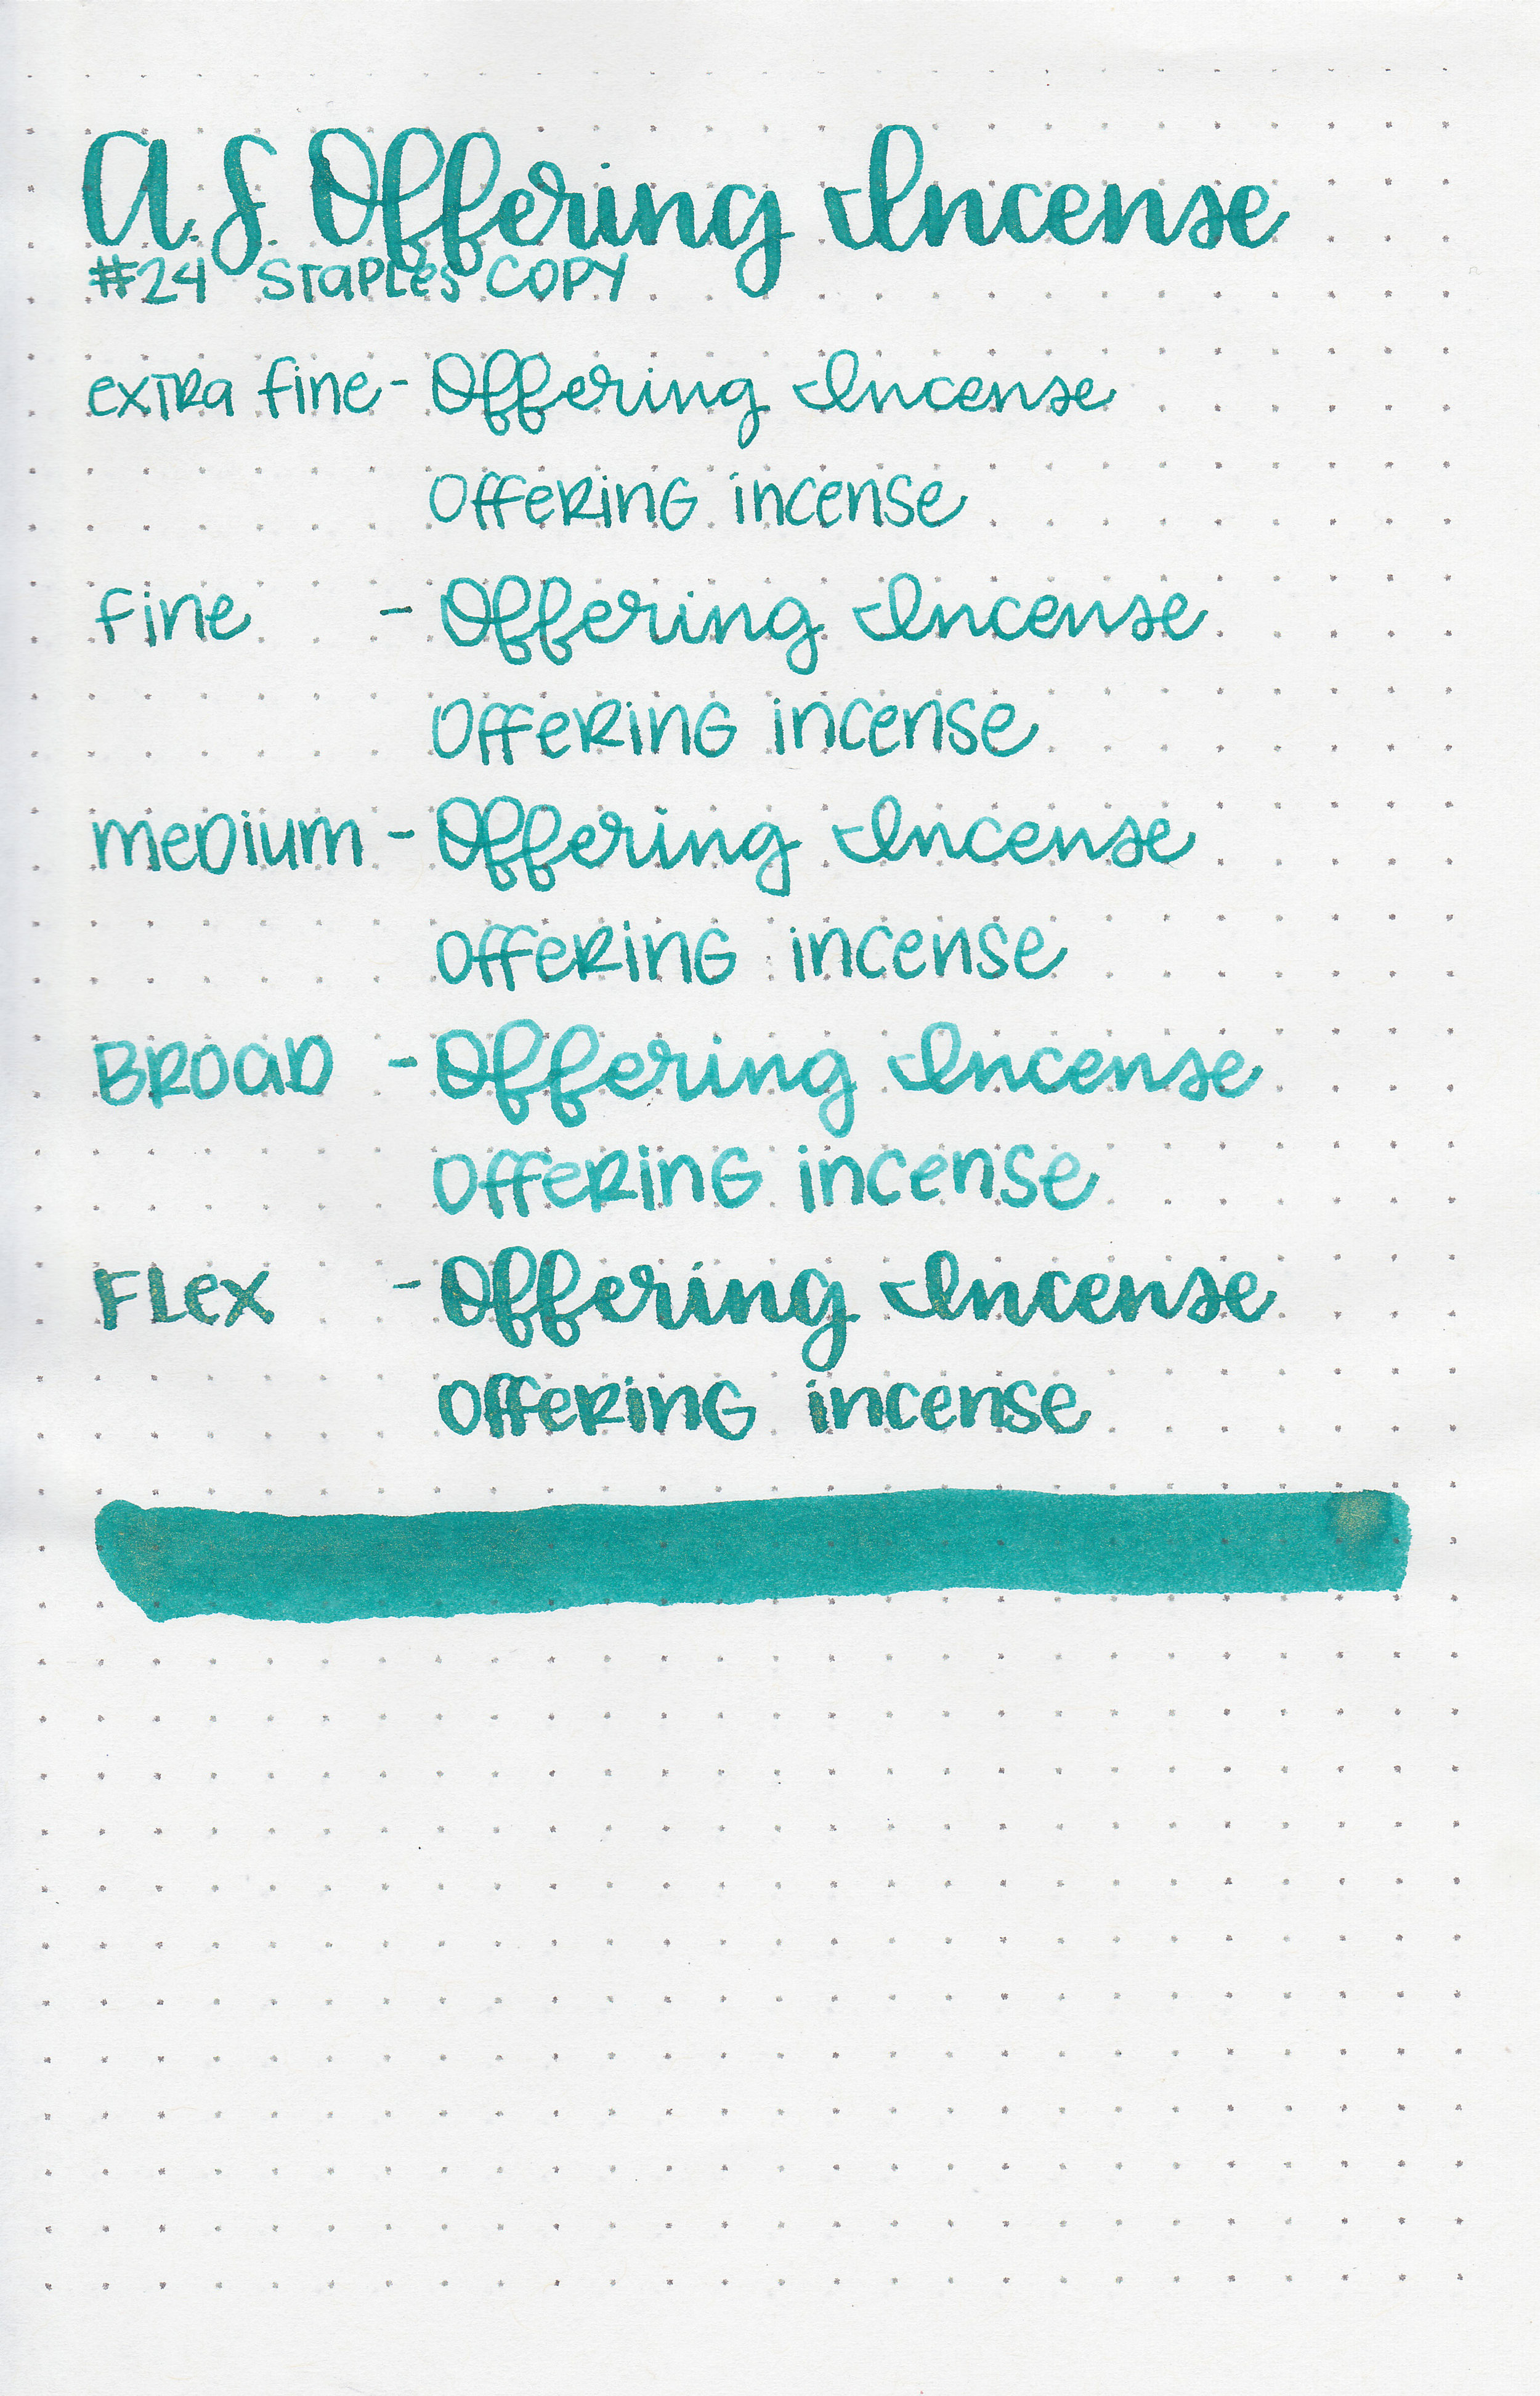 A.S. Offering Incense
#24 Staples Copy
extra fine - Offering Incense
Offering incense
fine - Offering Incense
Offering incense
medium - Offering Incense
Offering incense
Broad - Offering Incense
Offering incense
Flex - Offering Incense
Offering incense